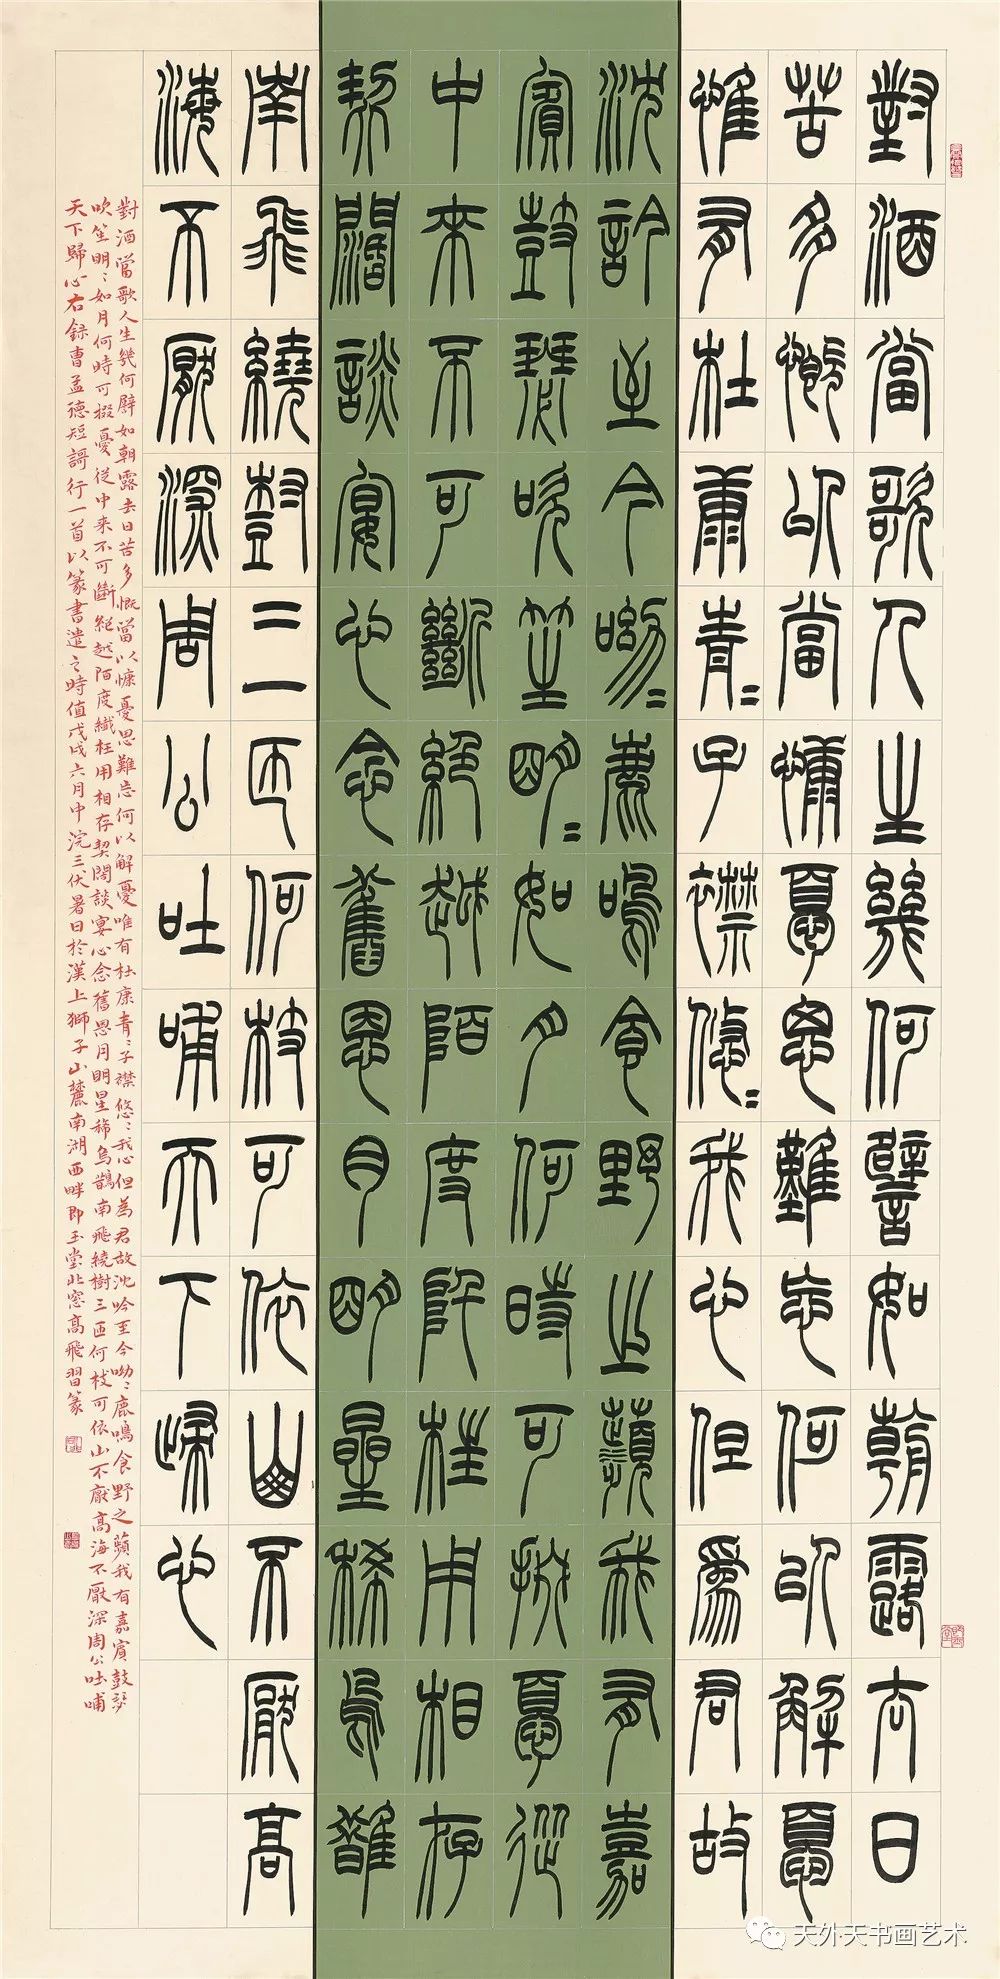 對酒當歌人生幾何譬如朝露去日
苦多慨以當慷憂思難忘何以解憂
惟有杜康青〻子襟悠〻我心但爲君故
沈訡至今呦〻鹿鳴食野之蘋我有嘉
賓鼓瑟吹笙明〻如月何時可掇憂從
中來不可斷絕越陌度阡枉用相存
契闊談宴心念舊恩月明星稀烏鵲
南飛繞樹三匝何枝可依山不厭高
海不厭深周公吐哺天下歸心
對酒當歌人生幾何譬如朝露去日苦多慨當以慷憂思難忘何以解憂唯有杜康青〻子襟悠〻我心但為君故沈吟至今呦〻鹿鳴食野之蘋我有嘉賓鼓瑟
吹笙明〻如月何時可掇憂從中來不可斷絕越陌度枉用相存契闊談宴心念舊恩月明星稀烏鵲南飛繞樹三匝何枝可依山不厭高海不厭深周公吐哺
天下歸心右錄曹孟德短謌行一首以篆書遣之時值戊戌六月中浣三伏暑日於漢上獅子山麓南湖西畔即玉堂北窓高飛習篆
天外天书画艺术